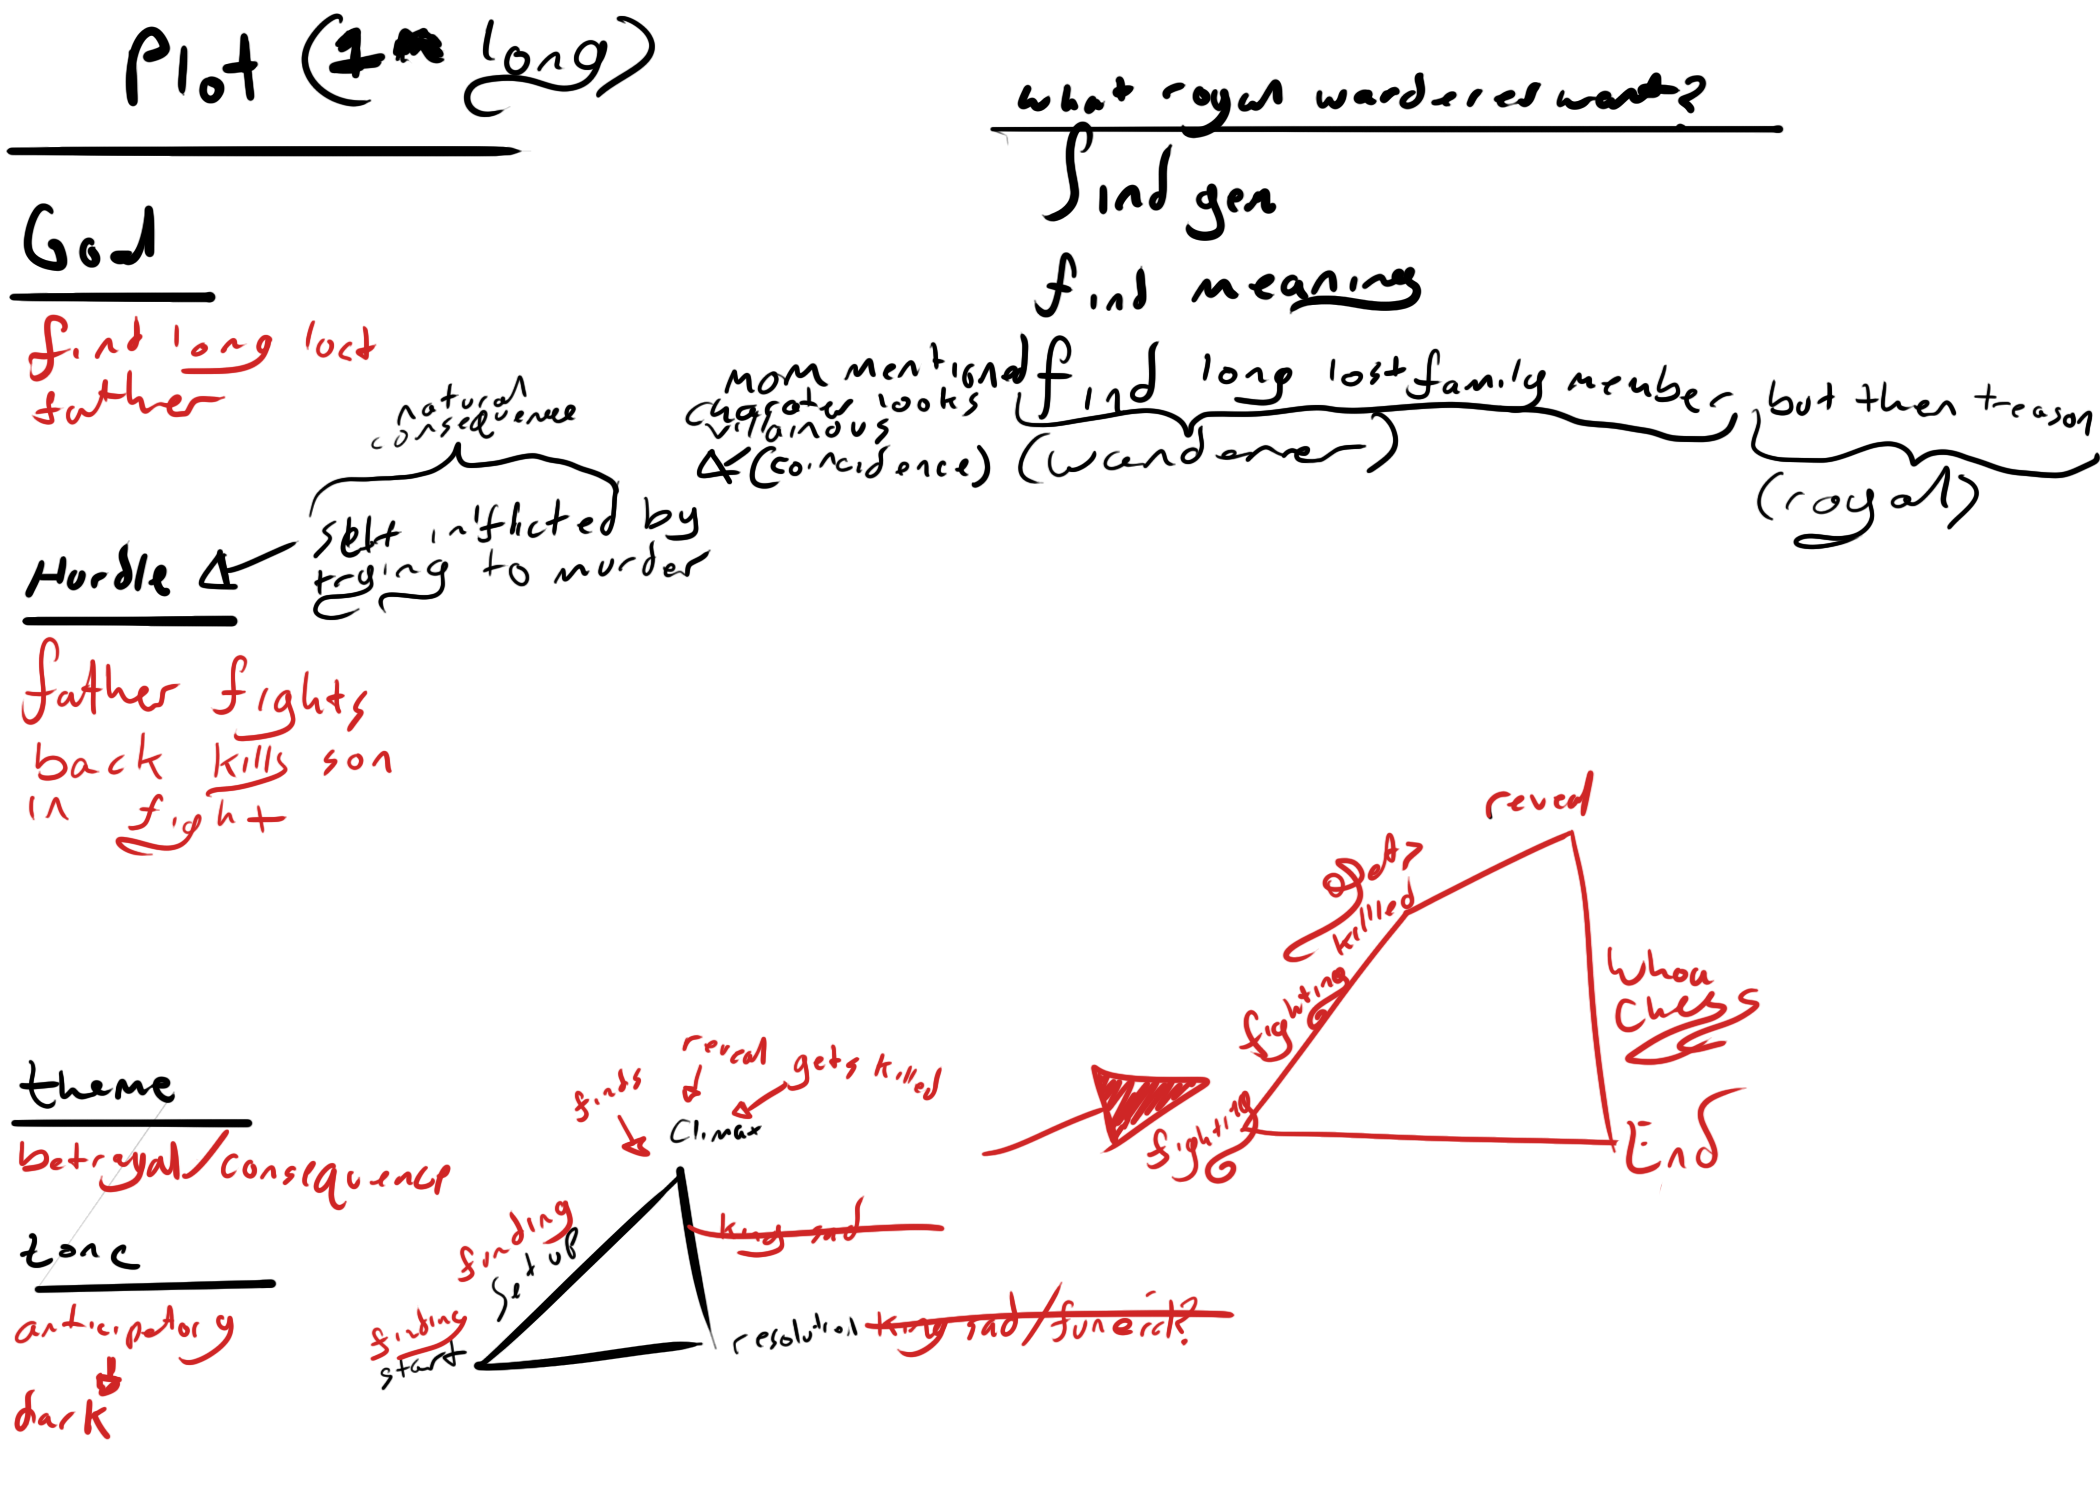 Plot (1m long)
what royal warderes want?
find gem
find meaning
find long lost family member
but then treason
(wanderer)
(royal)
mom mentioned
charater looks
villainous
(coincidence)
Goal
find long lost
father
natural
consequence
self inflicted by
trying to murder
Hurdle
father fights
back kills son
in fight
theme
betrayal/consequence
tone
anticipatory
dark
finds
reveal
gets killed
Climax
finding
set up
finding
start
king sad
resolution
king sad/funeral?
reveal
killed
fighting
fighting
whoa
chess
End